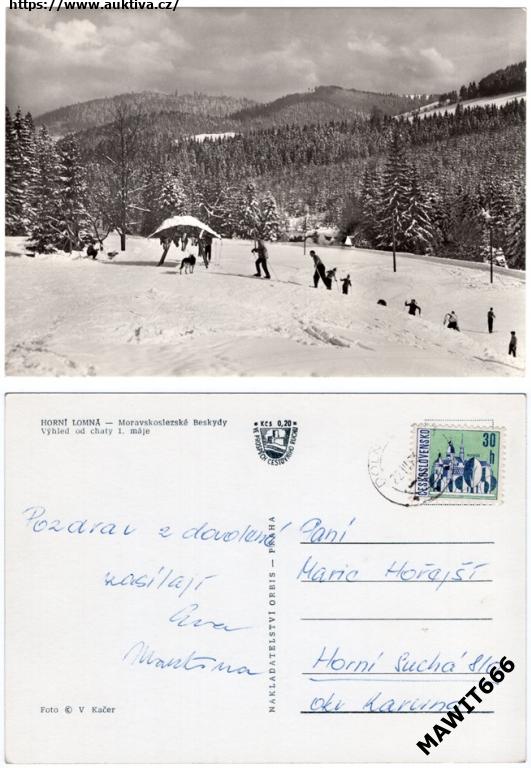 https://www.auktiva.cz/
HORNÍ LOMNÁ — Moravskoslezské Beskydy
Výhled od chaty 1. máje
Kčs 0,20
VE PROSPĚCH CESTOVNÍHO RUCHU
30 h
ČESKOSLOVENSKO
Pozdrav z dovolené
zasílají
Eva
Martina
NAKLADATELSTVÍ ORBIS — PRAHA
Paní
Marie Hořejší
Horní Suchá
okr Karviná
Foto © V Kačer
MAWIT666